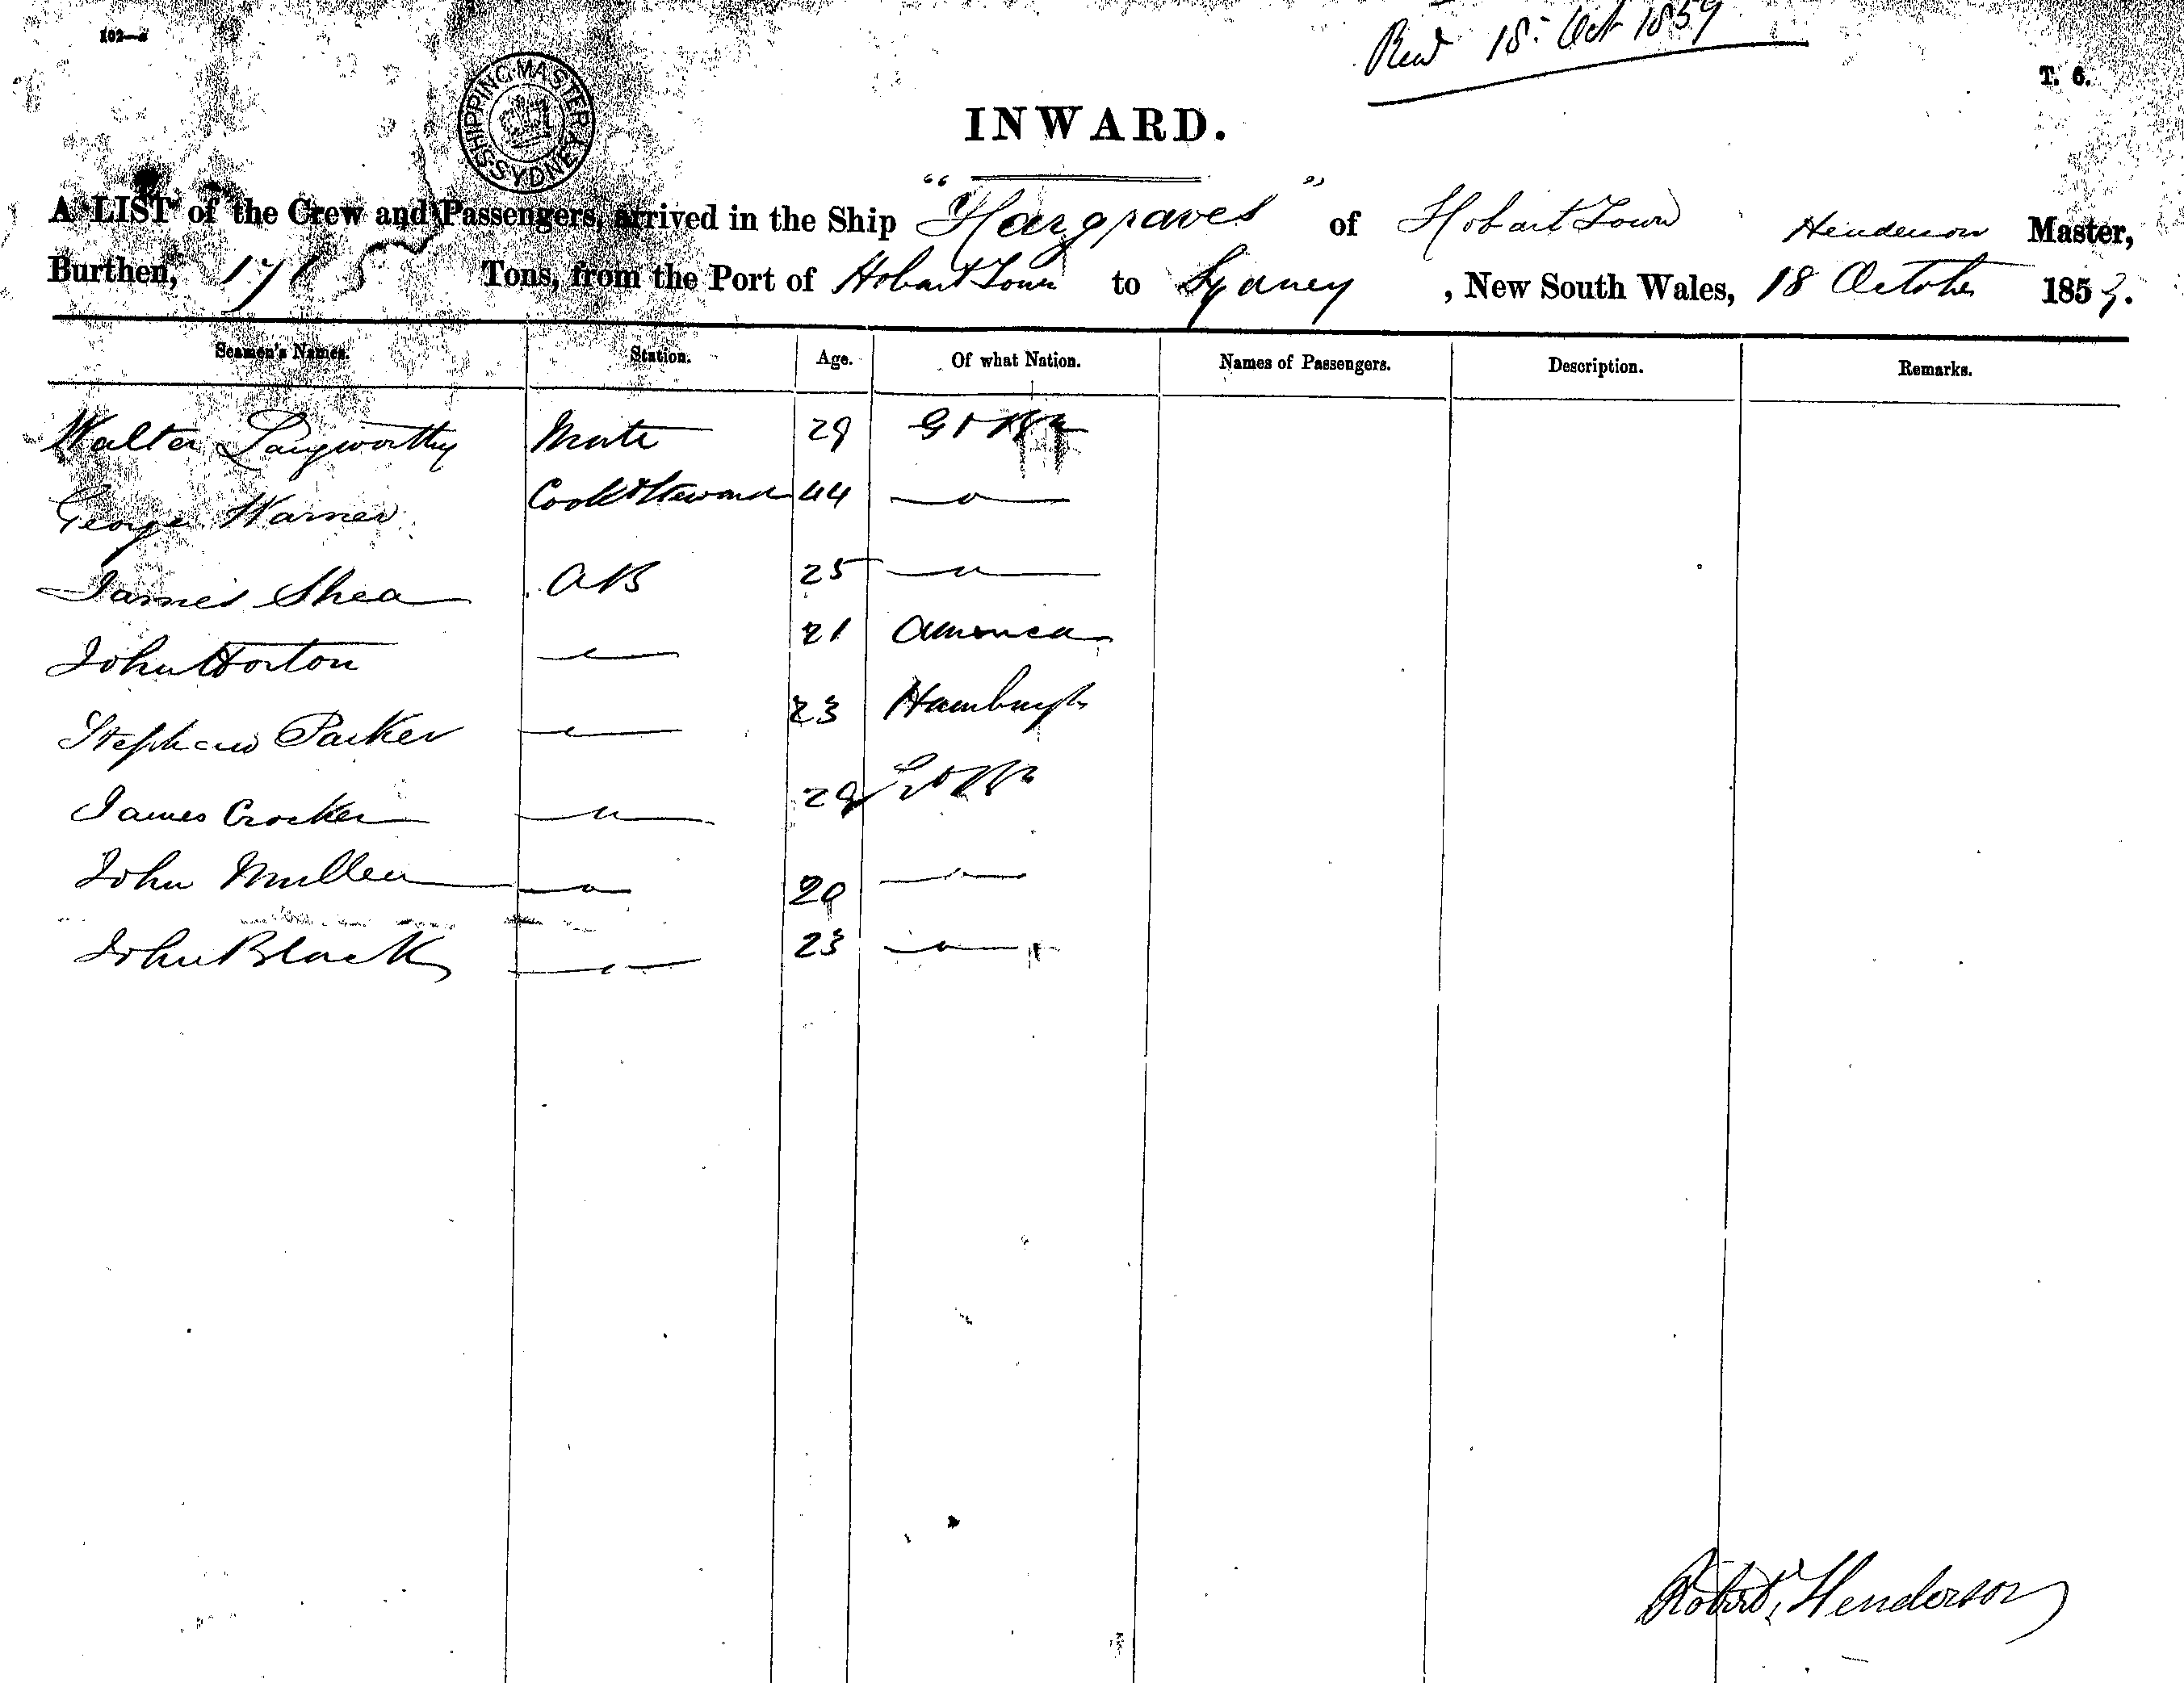 102—a
Recd 18 Oct 1859
T. 6.
SHIPPING MASTER SYDNEY
INWARD.
A LIST of the Crew and Passengers, arrived in the Ship "Hargraves" of Hobart Town Henderson Master,
Burthen, Tons, from the Port of Hobart Town to Sydney, New South Wales, 18 October 1859.
Seamen's Names. Station. Age. Of what Nation. Names of Passengers. Description. Remarks.
Walter Langworthy Mate 29 Gt Bn
George Warner Cook & Steward 44 — " —
James Shea AB 25 — " —
John Horton — " — 21 America
Stephen Parker — " — 23 Hamburgh
James Crocker — " — 29 Gt Bn
John Mullen — " — 20 — " —
John Black — " — 23 — " —
Robert Henderson